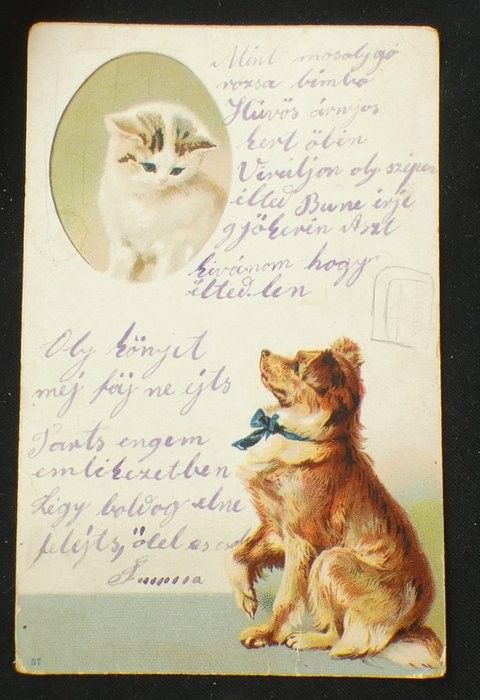 Mint mosolygó
rozsa bimbo
Hüvös árnyos
kert ölén
Viruljon oly szépen
élted Bune érje
gyökerén Azt
kivánom hogy
életed len
Oly könyet
mej fáj ne ejts
Tarts engem
emlikezetben
Légy boldog elne
felejts, ölel es csol
F......a
57